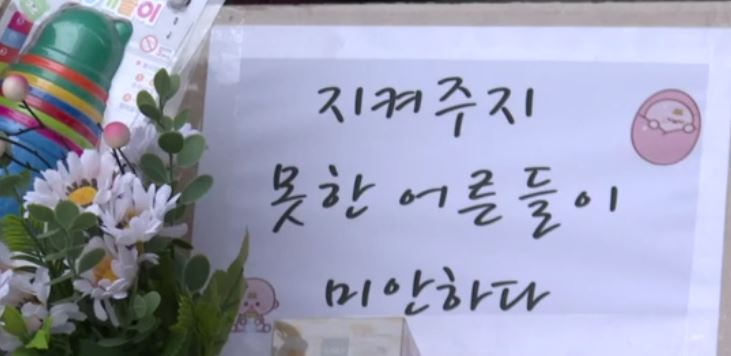 지켜주지
못한 어른들이
미안하다